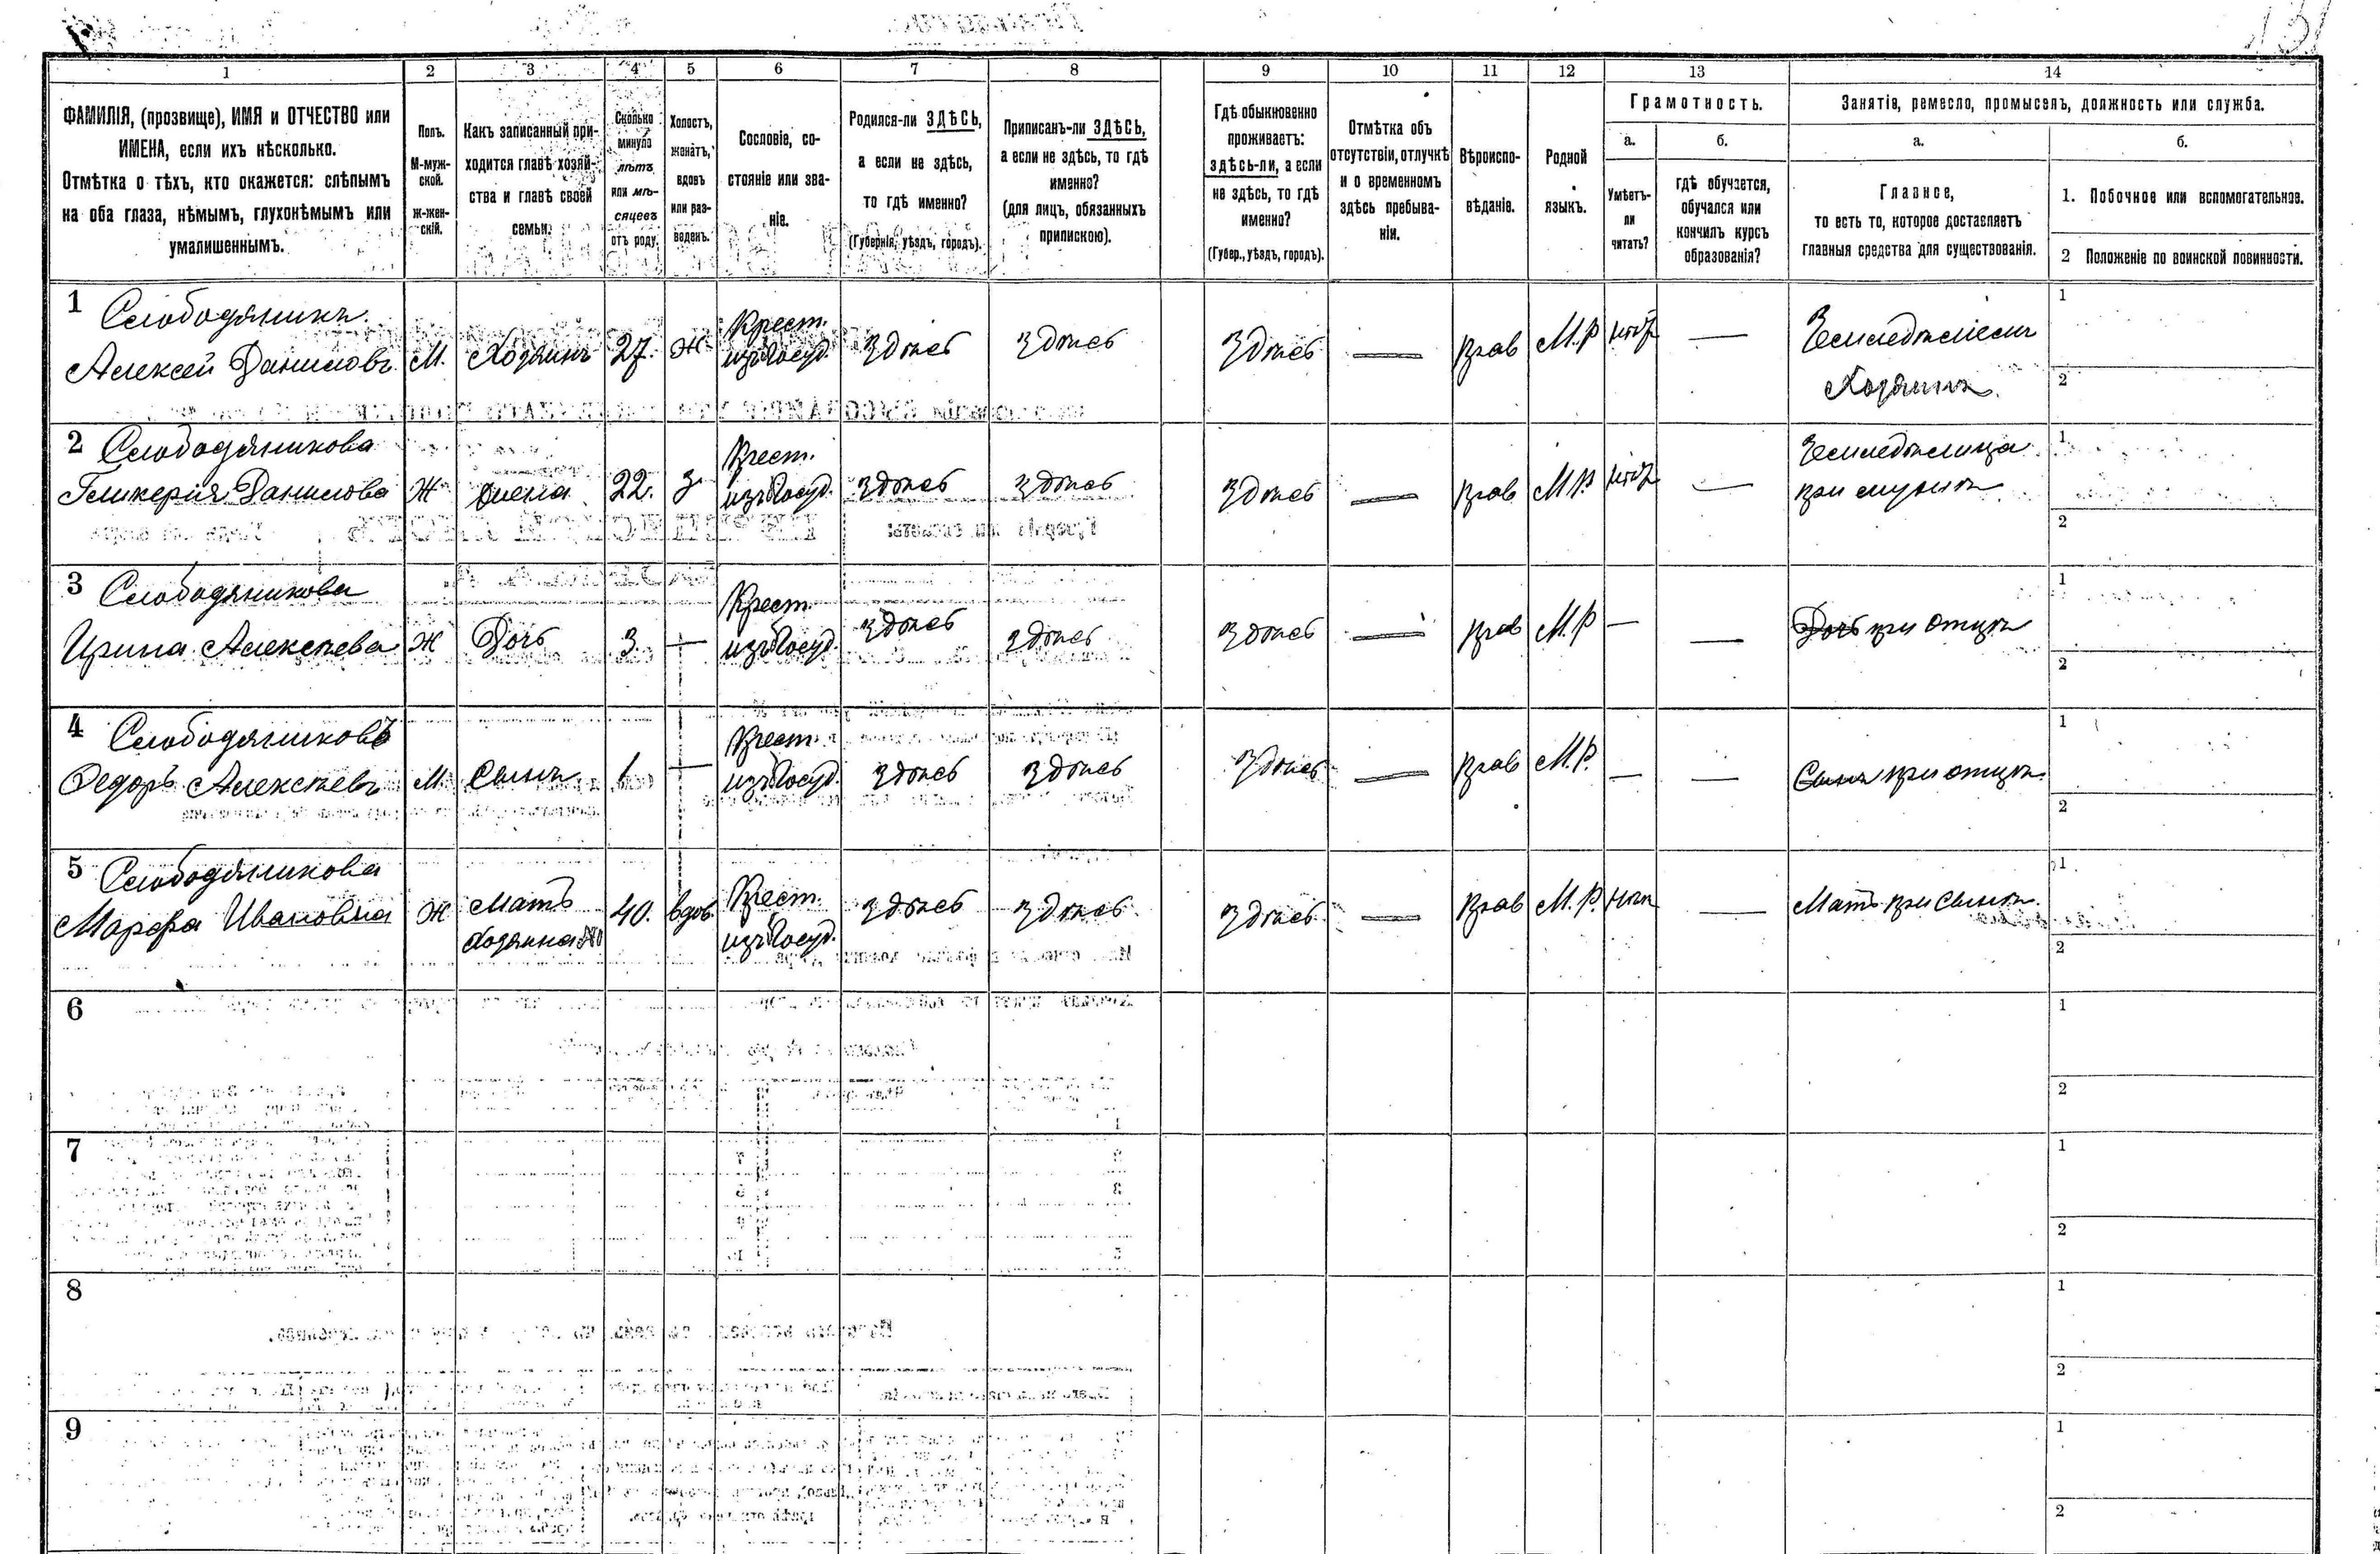 131
1 2 3 4 5 6 7 8 9 10 11 12 13 14
ФАМИЛІЯ, (прозвище), ИМЯ и ОТЧЕСТВО или
ИМЕНА, если ихъ нѣсколько.
Отмѣтка о тѣхъ, кто окажется: слѣпымъ
на оба глаза, нѣмымъ, глухонѣмымъ или
умалишеннымъ.
Полъ.
М-муж-
ской.
Ж-жен-
скій.
Какъ записанный при-
ходится главѣ хозяй-
ства и главѣ своей
семьи.
Сколько
минуло
лѣтъ
или мѣ-
сяцевъ
отъ роду.
Холостъ,
женатъ,
вдовъ
или раз-
веденъ.
Сословіе, со-
стояніе или зва-
ніе.
Родился-ли ЗДѢСЬ,
а если не здѣсь,
то гдѣ именно?
(Губернія, уѣздъ, городъ).
Приписанъ-ли ЗДѢСЬ,
а если не здѣсь, то гдѣ
именно?
(для лицъ, обязанныхъ
припискою).
Гдѣ обыкновенно
проживаетъ:
здѣсь-ли, а если
не здѣсь, то гдѣ
именно?
(Губер., уѣздъ, городъ).
Отмѣтка объ
отсутствіи, отлучкѣ
и о временномъ
здѣсь пребыва-
ніи.
Вѣроиспо-
вѣданіе.
Родной
языкъ.
Грамотность.
а.
Умѣетъ-
ли
читать?
б.
гдѣ обучается,
обучался или
кончилъ курсъ
образованія?
Занятіе, ремесло, промыселъ, должность или служба.
а.
Главное,
то есть то, которое доставляетъ
главныя средства для существованія.
б.
1. Побочное или вспомогательное.
2 Положеніе по воинской повинности.
1 Слободяникъ
Алексей Даниловъ М. Хозяинъ 27. Ж. Крест. изъ Госуд. Здѣсь Здѣсь Здѣсь — Прав М.Р — Земледѣлецъ
Хозяинъ
1
2
2 Слободяникова
Гликерія Данилова Ж жена 22. З. Крест. изъ Госуд. Здѣсь Здѣсь Здѣсь — Прав М.Р. — Земледѣлица
при мужѣ
1
2
3 Слободяникова
Ирина Алексѣева Ж Дочь 3. — Крест. изъ Госуд. Здѣсь Здѣсь Здѣсь — Прав М.Р — — Дочь при отцѣ
1
2
4 Слободяниковъ
Федоръ Алексѣевъ М. Сынъ 1 — Крест. изъ Госуд. Здѣсь Здѣсь Здѣсь — Прав М.Р. — — Сынъ при отцѣ.
1
2
5 Слободяникова
Марфа Ивановна Ж Мать 40. вдов. Крест. изъ Госуд. Здѣсь Здѣсь Здѣсь — Прав М.Р. — Мать при сынѣ.
Хозяина
1
2
6
1
2
7
1
2
8
1
2
9
1
2